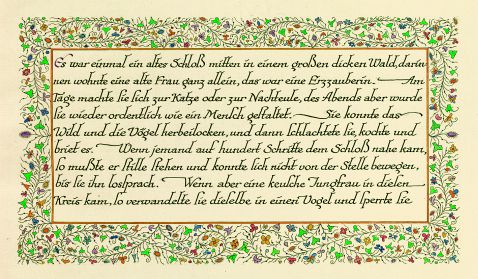 Es war einmal ein altes Schloß mitten in einem großen dicken Wald, darin
nen wohnte eine alte Frau ganz allein, das war eine Erzzauberin. Am
Tage machte sie sich zur Katze oder zur Nachteule, des Abends aber wurde
sie wieder ordentlich wie ein Mensch gestaltet. Sie konnte das
Wild und die Vögel herbeilocken, und dann schlachtete sie, kochte und
briet es. Wenn jemand auf hundert Schritte dem Schloß nahe kam,
so mußte er stille stehen und konnte sich nicht von der Stelle bewegen,
bis sie ihn lossprach. Wenn aber eine keusche Jungfrau in diesen
Kreis kam, so verwandelte sie dieselbe in einen Vogel und sperrte sie